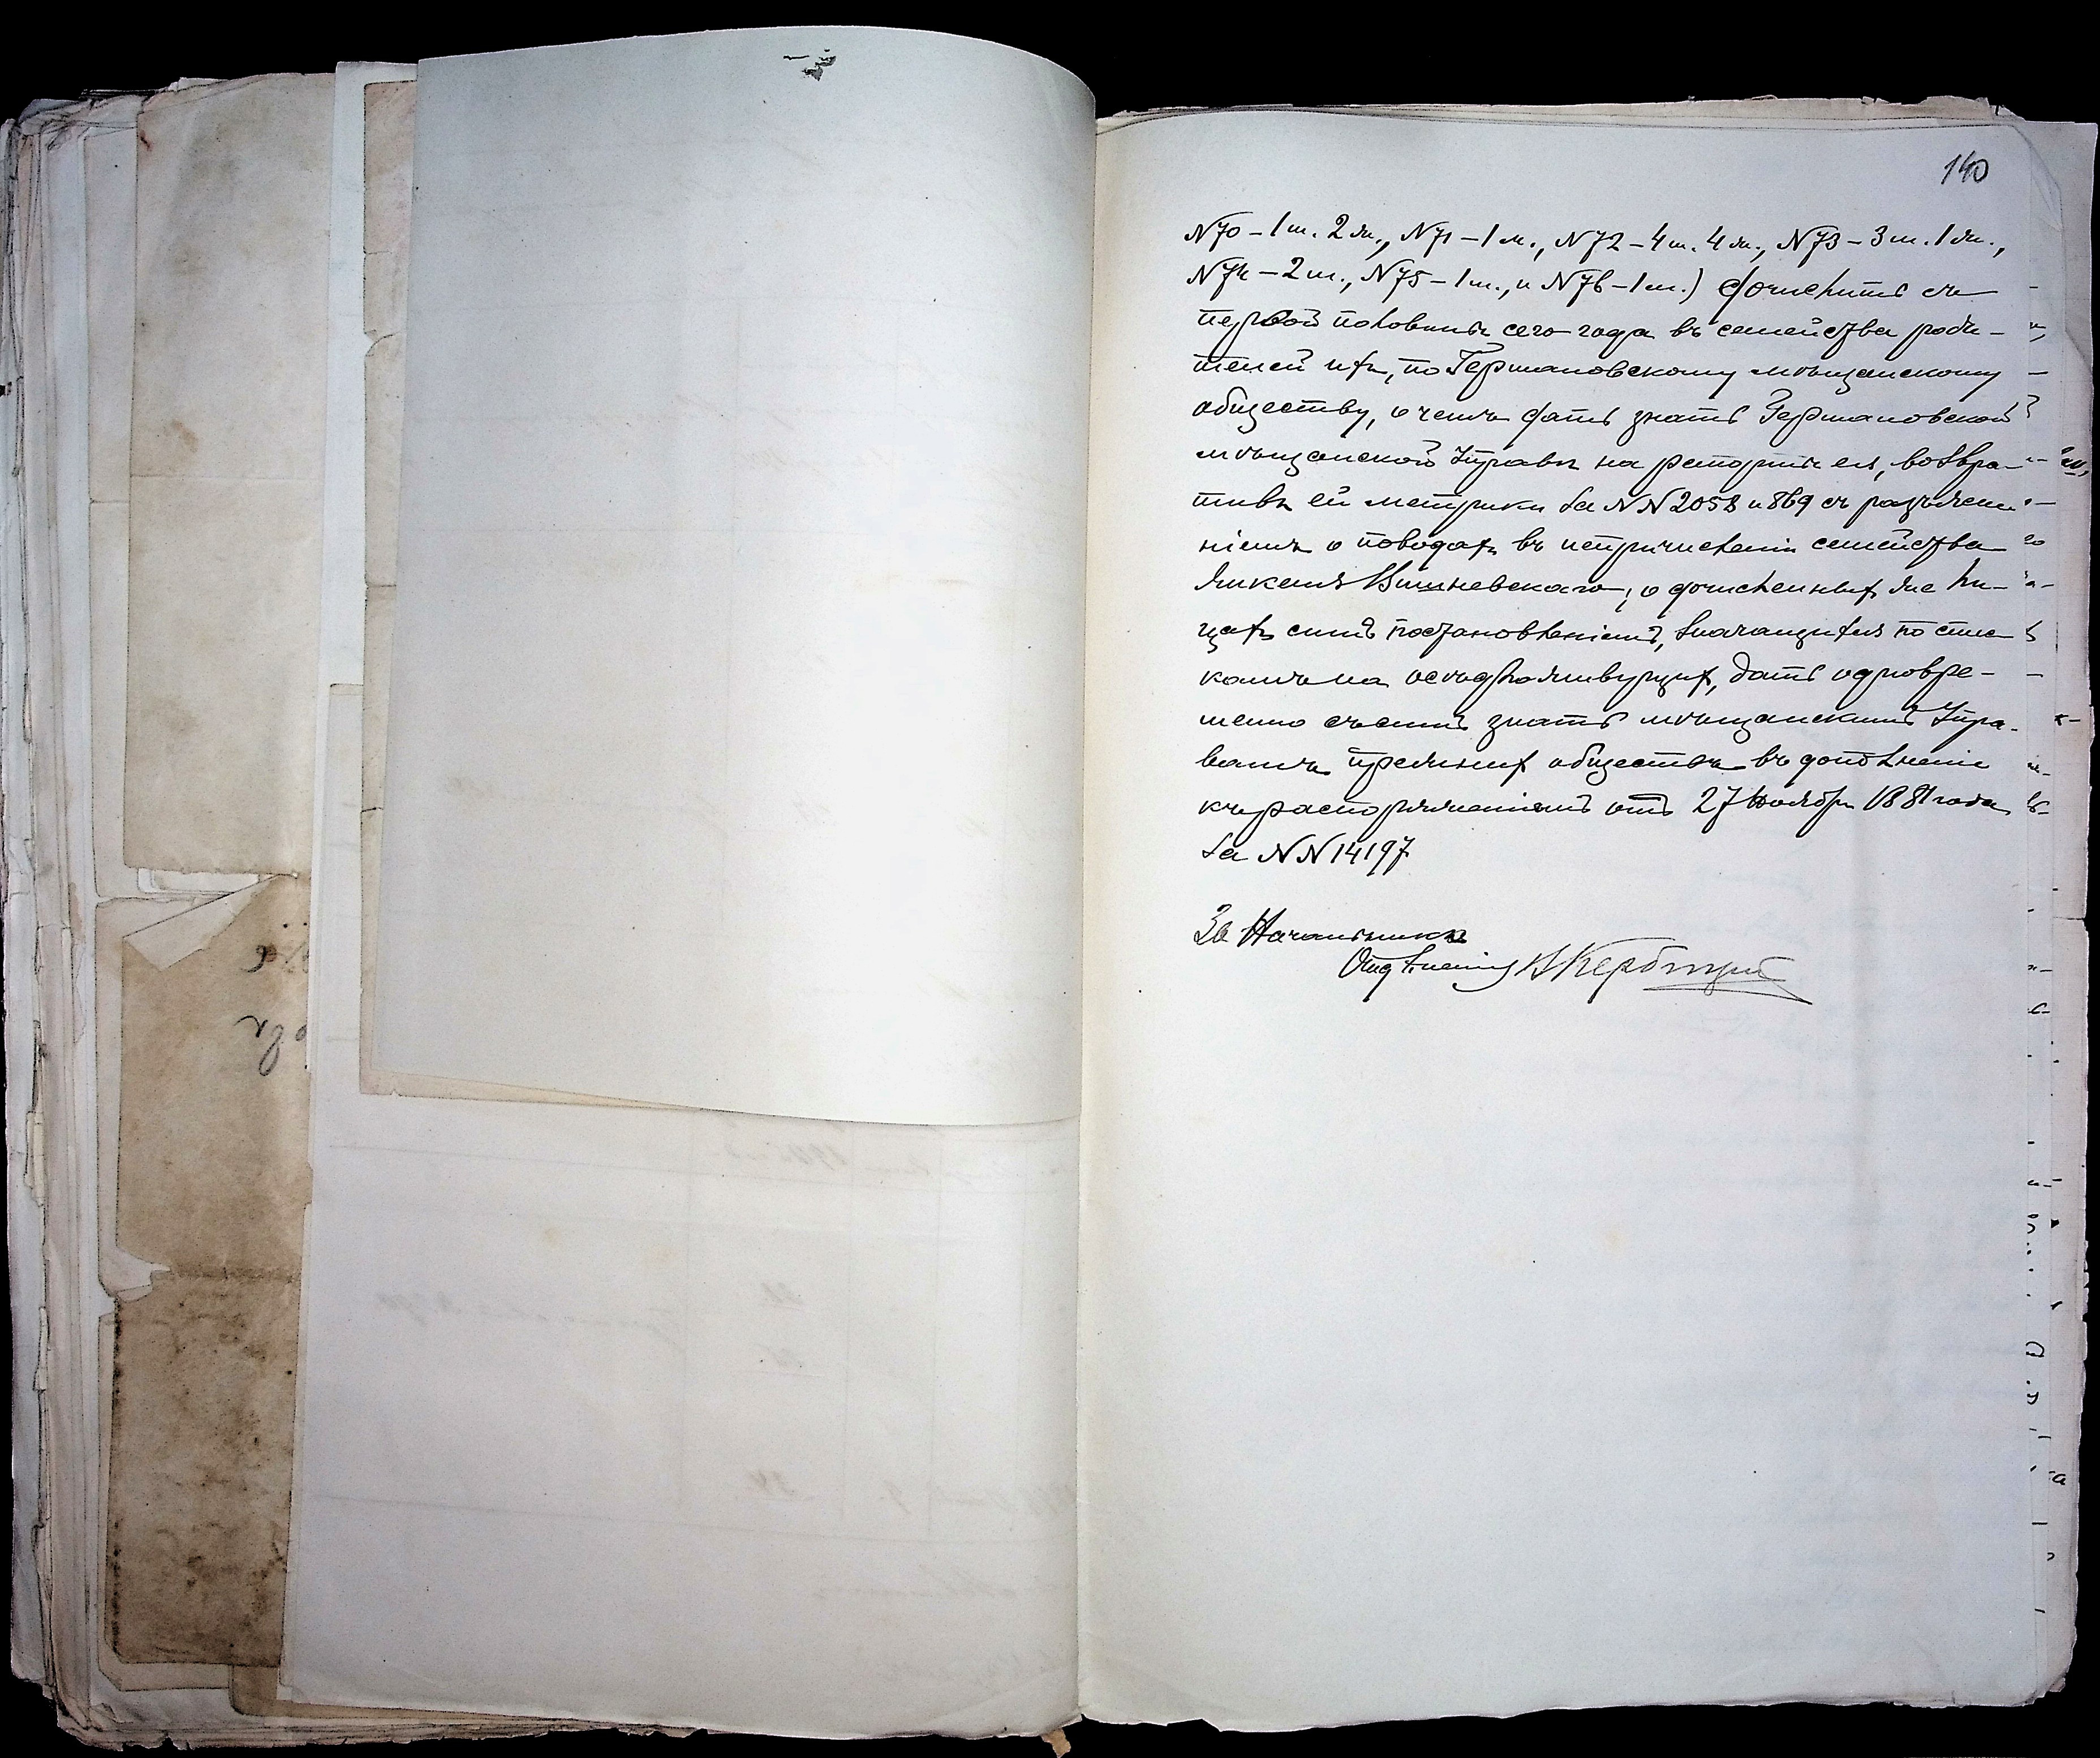 140
N70 – 1 м. 2 ж., N71 – 1 м., N72 – 4 м. 4 ж., N73 – 3 м. 1 ж.,
N74 – 2 м., N75 – 1 м., и N76 – 1 м.) дочислить съ
первой половины сего года въ семейства роди-
телей ихъ, по Германовскому мѣщанскому
обществу, о чемъ дать знать Германовской
мѣщанской Управѣ на рапортъ ея, возвра-
тивъ ей метрики за NN 2058 и 869 съ разъясне
ніемъ о поводахъ къ непричисленію семейства
Янкеля Вишневскаго; о дочисленныхъ же ли-
цахъ симъ постановленіемъ, значащихся по спис
камъ на осѣдложивущихъ, дать одновре-
менно съ симъ знать мѣщанскимъ Упра-
вамъ прежнихъ обществъ въ дополненіе
къ распоряженіямъ отъ 27 Ноября 1881 года
за NN 14197.
За Начальника
Отдѣленія